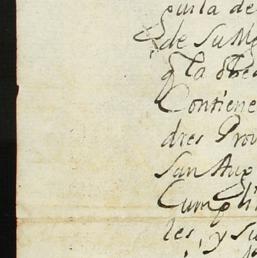 de su M
q la obe
Contiene
dres Prov
San Aug
Cumpli
les, y su